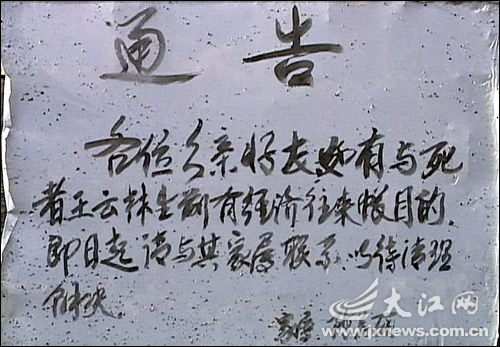 通告
各位久亲好友如有与死
者王云林生前有经济往来帐目的,
即日起请与其家属联系,以待清理
解决.
家属
大江网
www.jxnews.com.cn